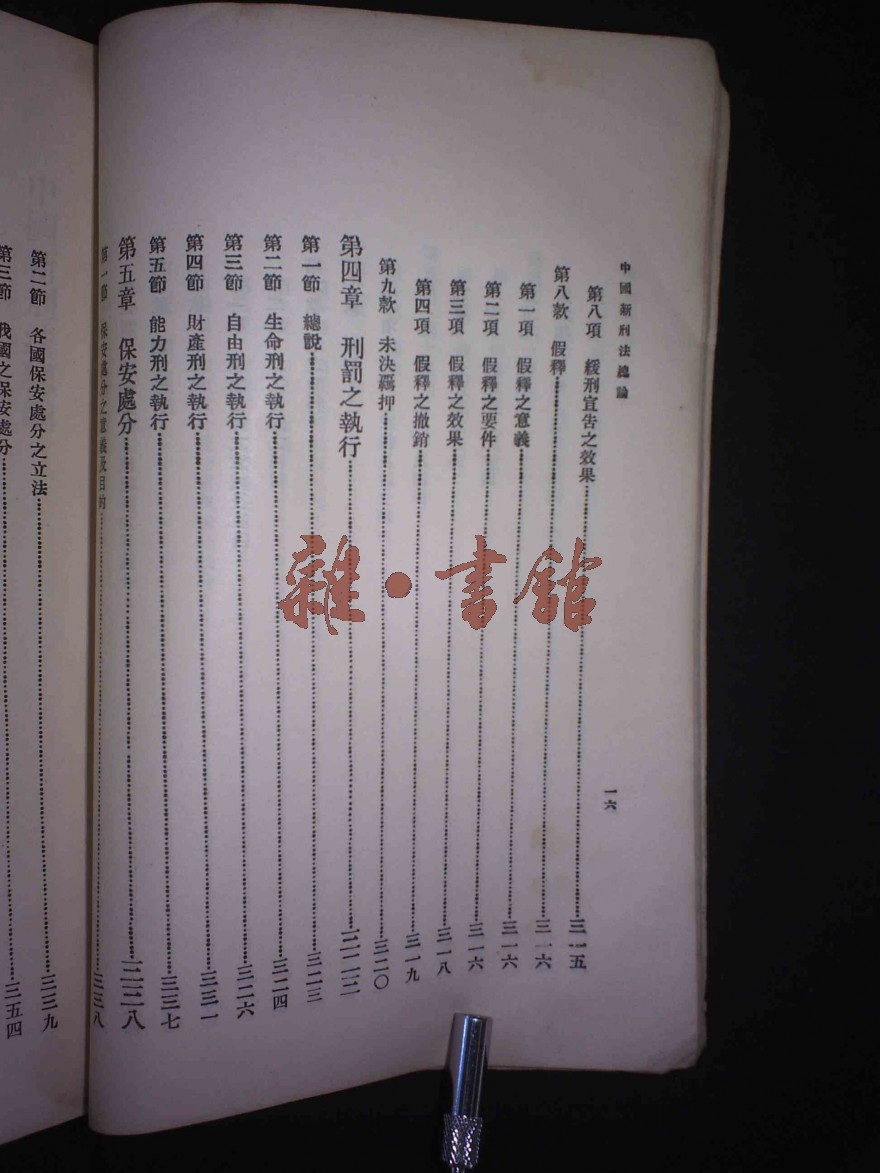 中國新刑法總論
一六
第八項 緩刑宣告之效果 三一五
第八款 假釋 三一六
第一項 假釋之意義 三一六
第二項 假釋之要件 三一六
第三項 假釋之效果 三一八
第四項 假釋之撤銷 三一九
第九款 未決羈押 三二〇
第四章 刑罰之執行
第一節 總說 三二三
第二節 生命刑之執行 三二四
第三節 自由刑之執行 三二六
第四節 財產刑之執行 三三一
第五節 能力刑之執行 三三七
第五章 保安處分
第一節 保安處分之意義及目的 三三八
第二節 各國保安處分之立法 三三九
第三節 我國之保安處分 三五四
雜·書館